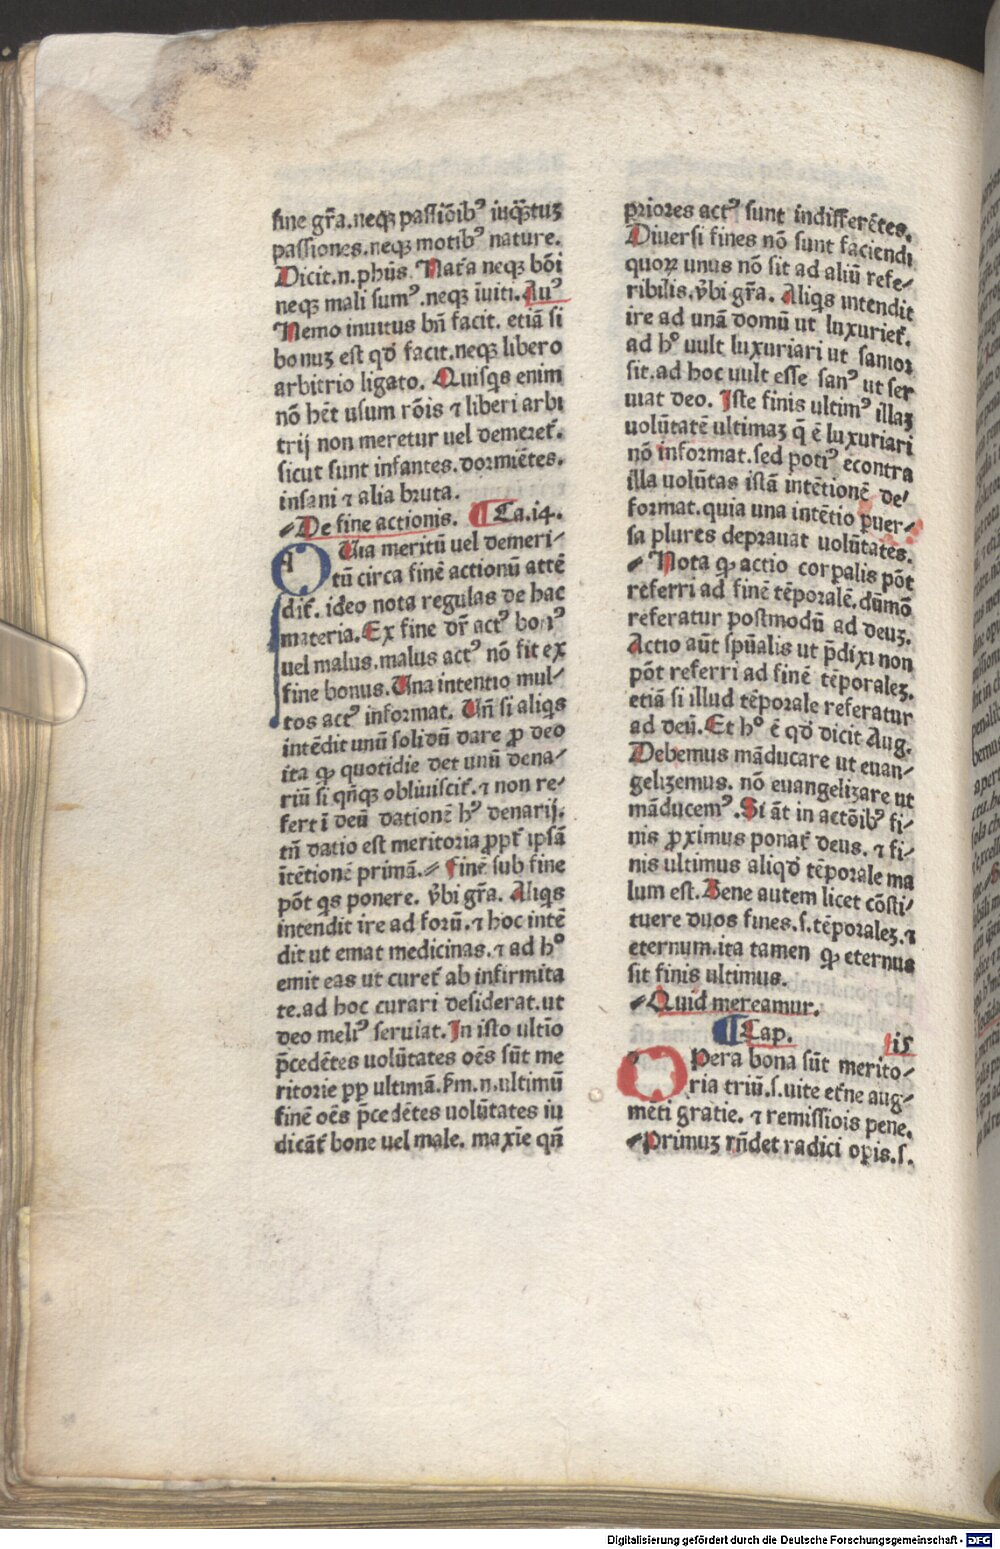 sine gr̃a.neqꝫ passiõibꝰ inqͣ̃tuꝫ
passiones.neqꝫ motibꝰ nature.
Dicit.n.phũs. Nat̃a neqꝫ bõi
neqꝫ mali sumꝰ.neqꝫ ĩuiti.Auꝰ
Nemo inuitus bñ facit. etiã si
bonuꝫ est qđ facit.neqꝫ libero
arbitrio ligato. Quisqs enim
nõ hẽt usum rõis ⁊ liberi arbi
trij non meretur uel demeret̃.
sicut sunt infantes.dormiẽtes.
insani ⁊ alia bruta.
De fine actionis. ¶ Ca.14.
QUia meritũ uel demeri⸗
tũ circa finẽ actionũ attẽ
dit̃. ideo nota regulas de hac
materia.Ex fine dr̃ actꝰ bonꝰ
uel malus.malus actꝰ nõ fit ex
fine bonus.Una intentio mul⸗
tos actꝰ informat. Uñ si aliqs
intẽdit unũ solidũ dare ꝓ deo
ita ꝙ quotidie det unũ dena⸗
riũ si qñqꝫ obliuiscit̃.⁊ non re⸗
fert ĩ deũ dationẽ hꝰ denarij.
tñ datio est meritoria ꝓpt̃ ipsã
ĩtẽtionẽ primã.⸗ Finẽ sub fine
põt qs ponere. v̄bi gr̃a. Aliqs
intendit ire ad forũ.⁊ hoc intẽ
dit ut emat medicinas.⁊ ad hº
emit eas ut curet̃ ab infirmita
te.ad hoc curari desiderat.ut
deo meliꝰ seruiat.In isto ultĩo
p̄cedẽtes uolũtates oẽs sũt me
ritorie ꝓp ultimã.P̃m.n.ultimũ
finẽ oẽs p̄cedẽtes uolũtates iu
dicãt̃ bone uel male. maxĩe qñ
priores actꝰ sunt indifferẽtes.
Diuersi fines nõ sunt faciendi
quoꝝ unus nõ sit ad aliũ refe⸗
ribilis.v̄bi gr̃a. Aliqs intendit
ire ad unã domũ ut luxuriet̃.
ad hº uult luxuriari ut sanior
sit.ad hoc uult esse sanꝰ ut ser
uiat deo. Iste finis ultimꝰ illaꝫ
uolũtatẽ ultimaꝫ q̃ ẽ luxuriari
nõ informat.sed potiꝰ econtra
illa uolũtas istã intẽtionẽ de⸗
format.quia una intẽtio puer⸗
sa plures deprauat uolũtates.
⸗ Nota ꝙ actio corpalis põt
referri ad finẽ tẽporalẽ.dũmõ
referatur postmodũ ad deuꝫ.
Actio aũt spũalis ut p̄dixi non
põt referri ad finẽ tẽporaleꝫ.
etiã si illud tẽporale referatur
ad deũ.Et hº ẽ qđ dicit Aug.
Debemus mãducare ut euan⸗
gelizemus. nõ euangelizare ut
mãducemꝰ.Si ãt in actõibꝰ fi⸗
nis ꝓximus ponat̃ deus.⁊ fi⸗
nis ultimus aliqđ tẽporale ma
lum est.Bene autem licet cõsti⸗
tuere duos fines.s.tẽporaleꝫ.⁊
eternum.ita tamen ꝙ eternus
sit finis ultimus.
⸗ Quid mereamur.
¶ Cap. 15
OPera bona sũt merito⸗
ria triũ.s.uite et̃ne aug⸗
mẽti gratie. ⁊ remissiois pene.
⸗ Primuꝫ rñdet radici opis.s.
Digitalisierung gefördert durch die Deutsche Forschungsgemeinschaft - DFG